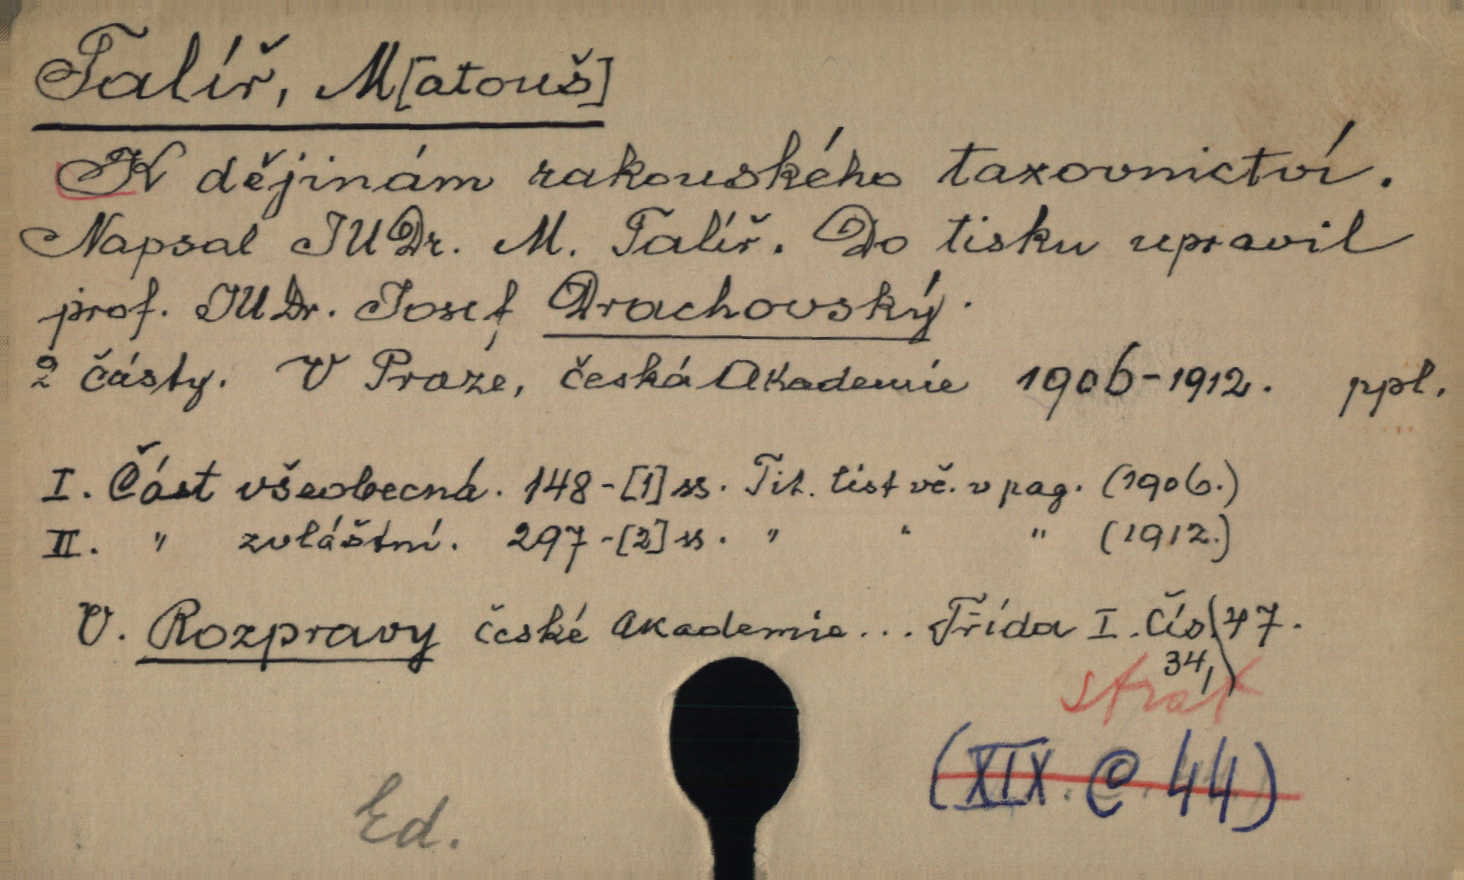 Talíř, M[atouš]
K dějinám rakouského taxovnictví.
Napsal JUDr. M. Talíř. Do tisku upravil
prof. JUDr. Josef Drachovský.
2 části. V Praze, česká Akademie 1906-1912. ppl.
I. Část všeobecná. 148-[1] ss. Tit. list vč. v pag. (1906.)
II. " zvláštní. 297-[2] ss. " " " (1912.)
V. Rozpravy české Akademie... Třída I. Čís 47.
34,
strat
(XIX. C. 44)
Ed.